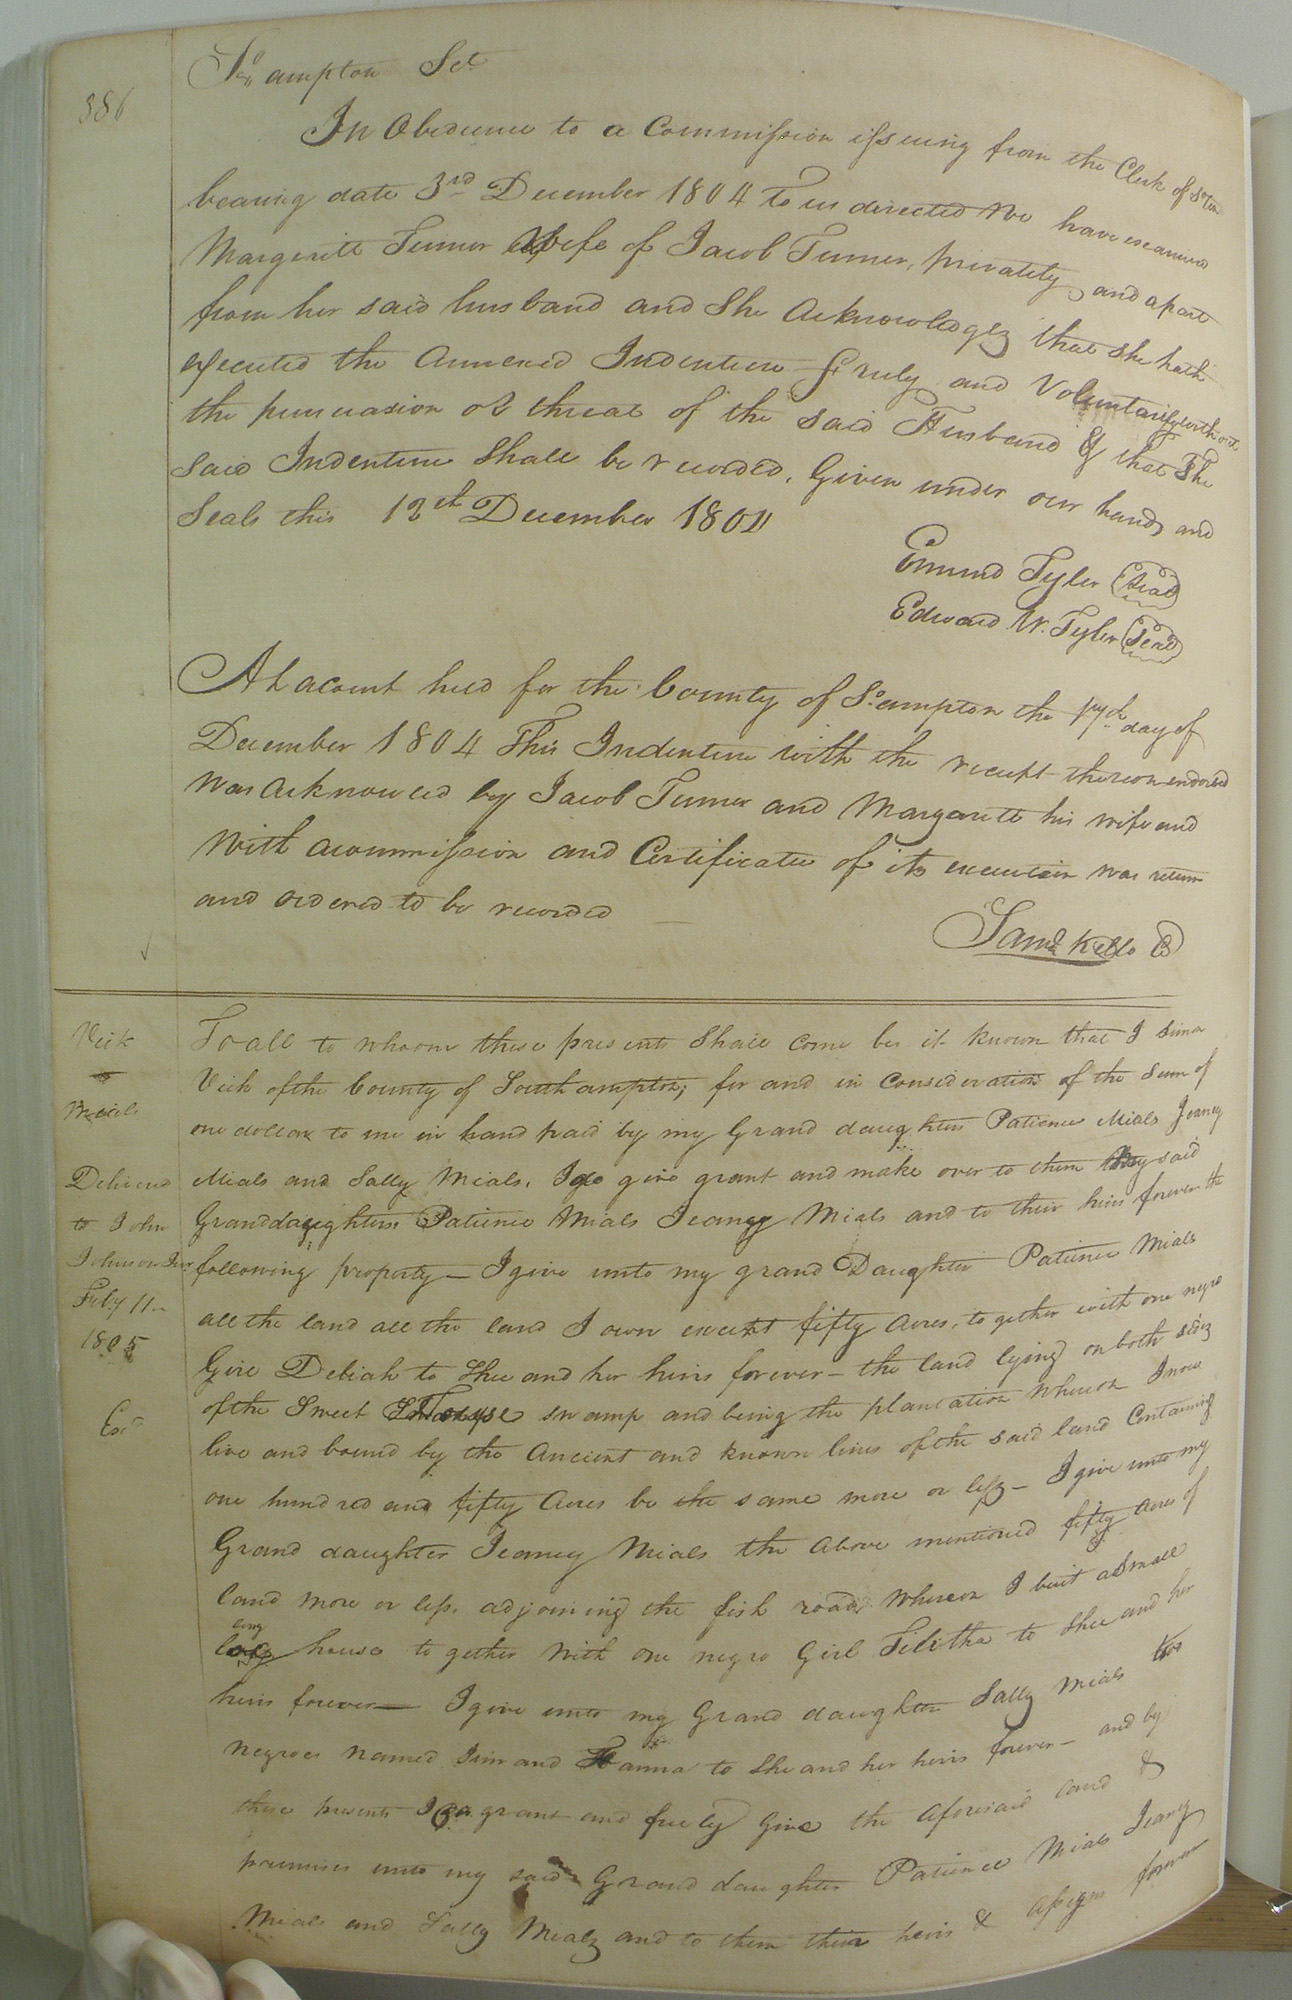 386
So.ampton Sct.
In Obedience to a Commission issueing from the Clerk of
bearing date 3rd December 1804 to us directed We have examined
Margerite Turner Wife of Jacob Turner, privately, and apart
from her said husband and She Acknowledges that she hath
executed the annexed Indenture freely and Voluntarily without
the pursuasion or threat of the said Husband & that the
said Indenture Shall be recorded, Given under our hands and
Seals this 12th December 1804
Edmund Tyler (Seal)
Edward W. Tyler (Seal)
At acourt held for the County of So.ampton the 17th day of
December 1804 This Indenture with the receipt thereon endorsed
Was Acknowled by Jacob Turner and Margarett his wife and
With acommission and Certificate of its execution was return
and ordered to be recorded
Saml. Kello
Vick
Mials
Delivered
to John
Johnson Jur
Feby 11
1805
Exd
To all to whoom these presents Shall come be it known that I
Vick of the County of Southampton, for and in Consideration of the Sum of
one dollar to me in hand paid by my Grand daughters Patience Mials Jeaney
Mials and Sally Mials, I do give grant and make over to them my said
Granddaughters Patience Mials Jeaney Mials and to their heirs forever the
following property — I give unto my grand Daughter Patience Mials
all the land all the land I own except fifty Acres, to gether with one negro
Girl Deliah to Shee and her heirs forever — the land lying on both sides
of the Sweet swamp and being the plantation whereon I now
live and bound by the Ancient and known lines of the said land Containing
one hundred and fifty Acres be the same more or less — I give unto my
Grand daughter Jeaney Mials the above mentioned fifty acres of
land more or less, adjoining the fish road, whereon I built a Small
long
house to gether with one negro Girl Tilitha to Shee and her
heirs forever — I give unto my Grand daughter Sally Mials two
negroes named Jim and Hanna to She and her heirs forever — and by
these presents I do grant and freely Give the aforesaid land &
premises unto my said Grand daughters Patience Mials Jeany
Mials and Sally Mials and to them their heirs & Assigns forever